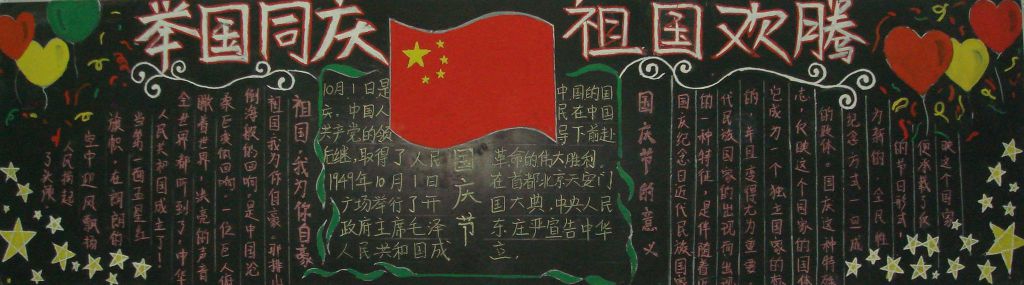 举国同庆 祖国欢腾
10月1日是中国的国
庆,中国人民在中国
共产党的领导下前赴
后继,取得了人民革命的伟大胜利.
1949年10月1日在首都北京天安门
广场举行了开国大典,中央人民
政府主席毛泽东庄严宣告中华
人民共和国成立.
国庆节
祖国,我为你自豪
祖国,我为你自豪,那排山
倒海般的回响,是中国沦
桑巨变的回响,一位巨人俯
瞰着世界,洪亮的声音
全世界都听到了,中华
人民共和国成立了!
当第一面五星红
旗帜,在晴朗的
空中迎风飘扬
人民挺起
了头颅
国庆节的意义
国庆纪念日近代民族国家
的一种特征,是伴随着近
代民族国家的出现而出现
的,并且变得尤为重要
它成为一个独立国家的标
志,反映这个国家的国体
的政体。国庆这种特殊
纪念方式一旦成
为新的、全民性
的节日形式,
便承载了反
映这个国家